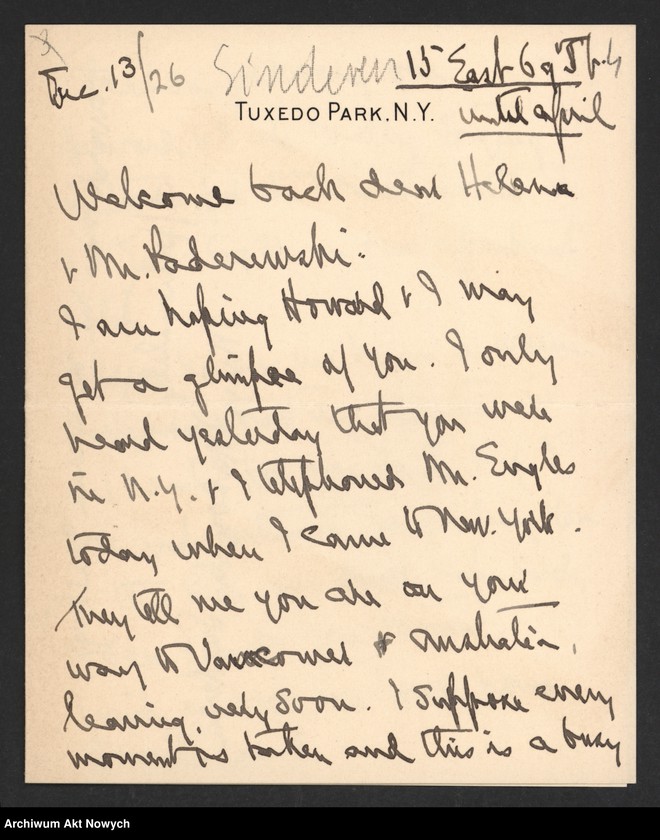 Dec. 13/26 Sinderen 15 East 69 St
TUXEDO PARK, N.Y.
until april
Welcome back dear Helena
& Mr. Paderewski.
I am hoping Howard & I may
get a glimpse of you. I only
heard yesterday that you were
in N.Y. & I telephoned Mr. Engles
today when I came to New. York.
They tell me you are on your
way to Vancouver & Australia,
leaving very soon. I suppose every
moment is taken and this is a busy
Archiwum Akt Nowych